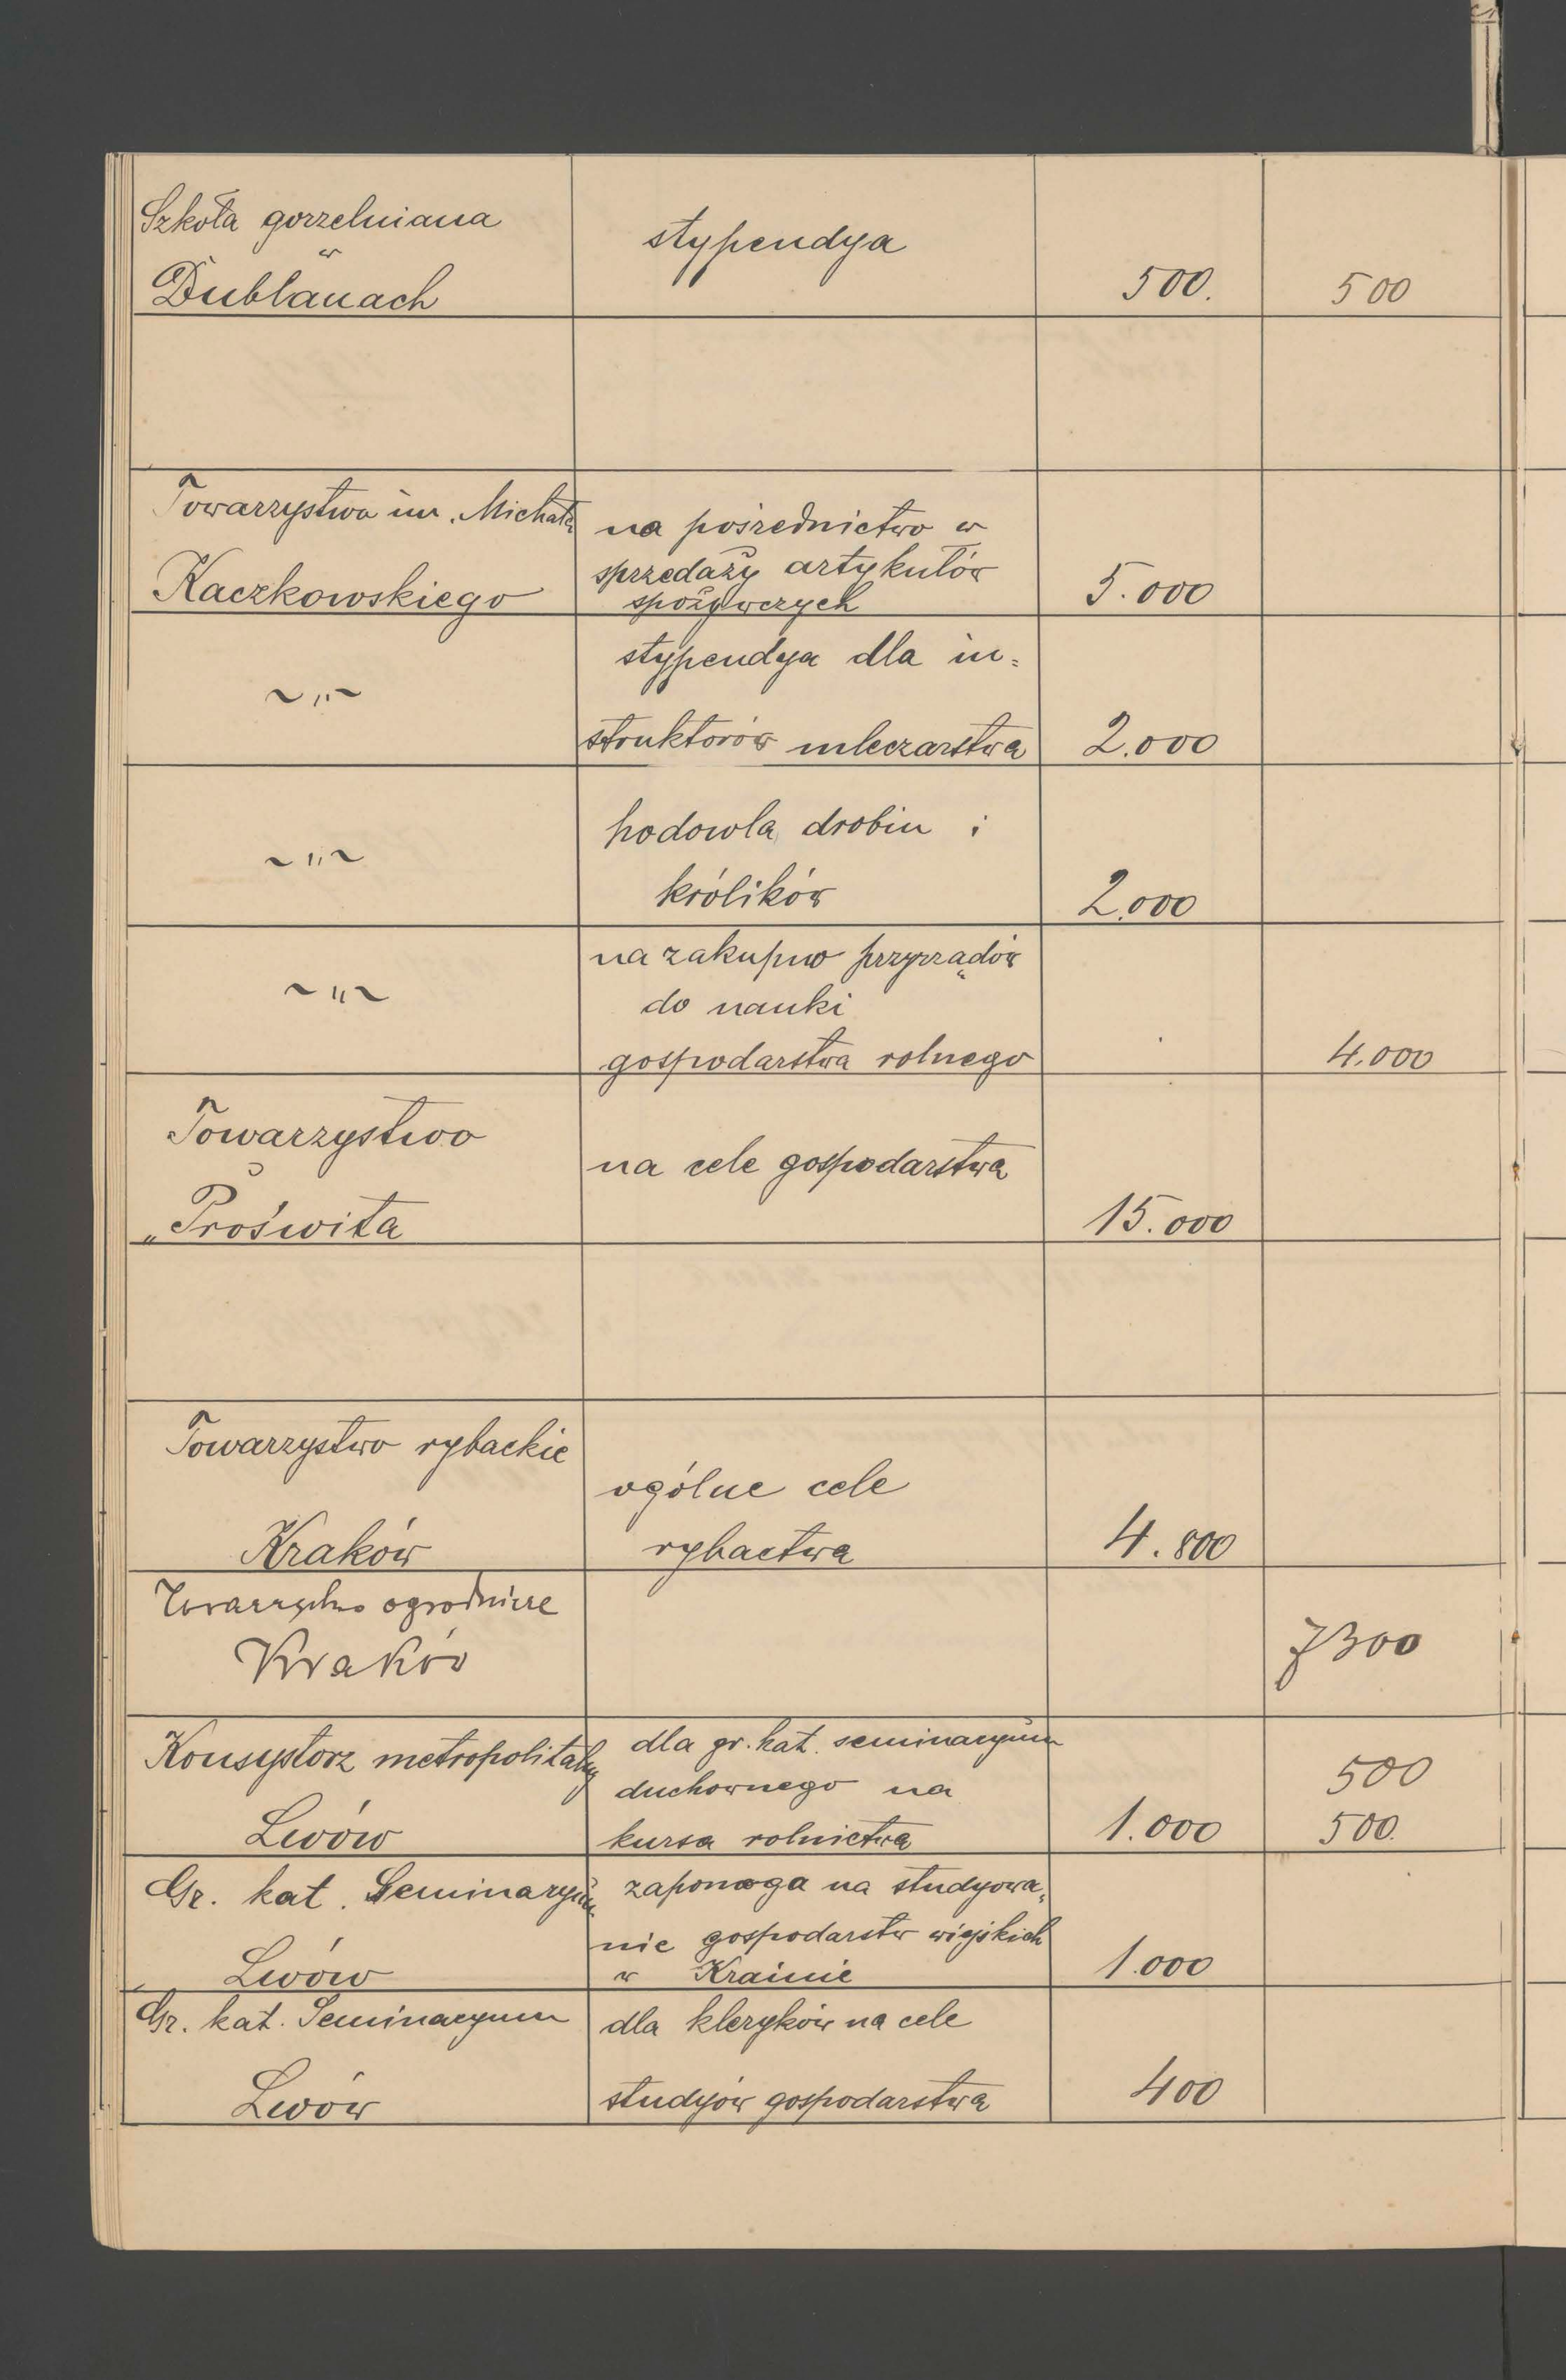 Szkoła gorzelniana
w
Dublanach
stypendya
500.
500
Towarzystwa im. Michała
Kaczkowskiego
na pośrednictwo w
sprzedaży artykułów
spożywczych
5.000
~„~
stypendya dla in=
struktorów mleczarstwa
2.000
~„~
hodowla drobiu i
królików
2.000
~„~
na zakupno przyrządów
do nauki
gospodarstwa rolnego
4.000
Towarzystwo
„Proświta
na cele gospodarstwa
15.000
Towarzystwo rybackie
Kraków
ogólne cele
rybactwa
4.800
Towarzystwo ogrodnicze
Kraków
7300
Konsystorz metropolitalny
Lwów
dla gr. kat. seminaryum
duchownego na
kursa rolnictwa
1.000
500
500.
Gr. kat. Seminaryum
Lwów
zapomoga na studyowa„
nie gospodarstw wiejskich
w Krainie
1.000
Gr. kat. Seminaryum
Lwów
dla kleryków na cele
studyów gospodarstwa
400